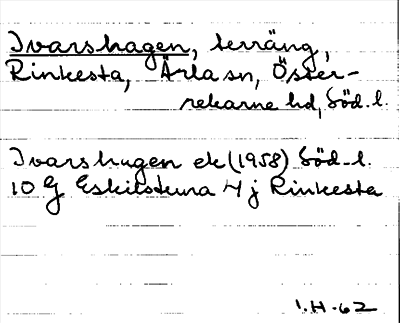 Ivarshagen, terräng,
Rinkesta, Ärla sn, Öster-
rekarne hd, Söd.l.
Ivarshagen ek (1958) Söd.l.
10 G Eskilstuna 4 j Rinkesta
I.H.-62